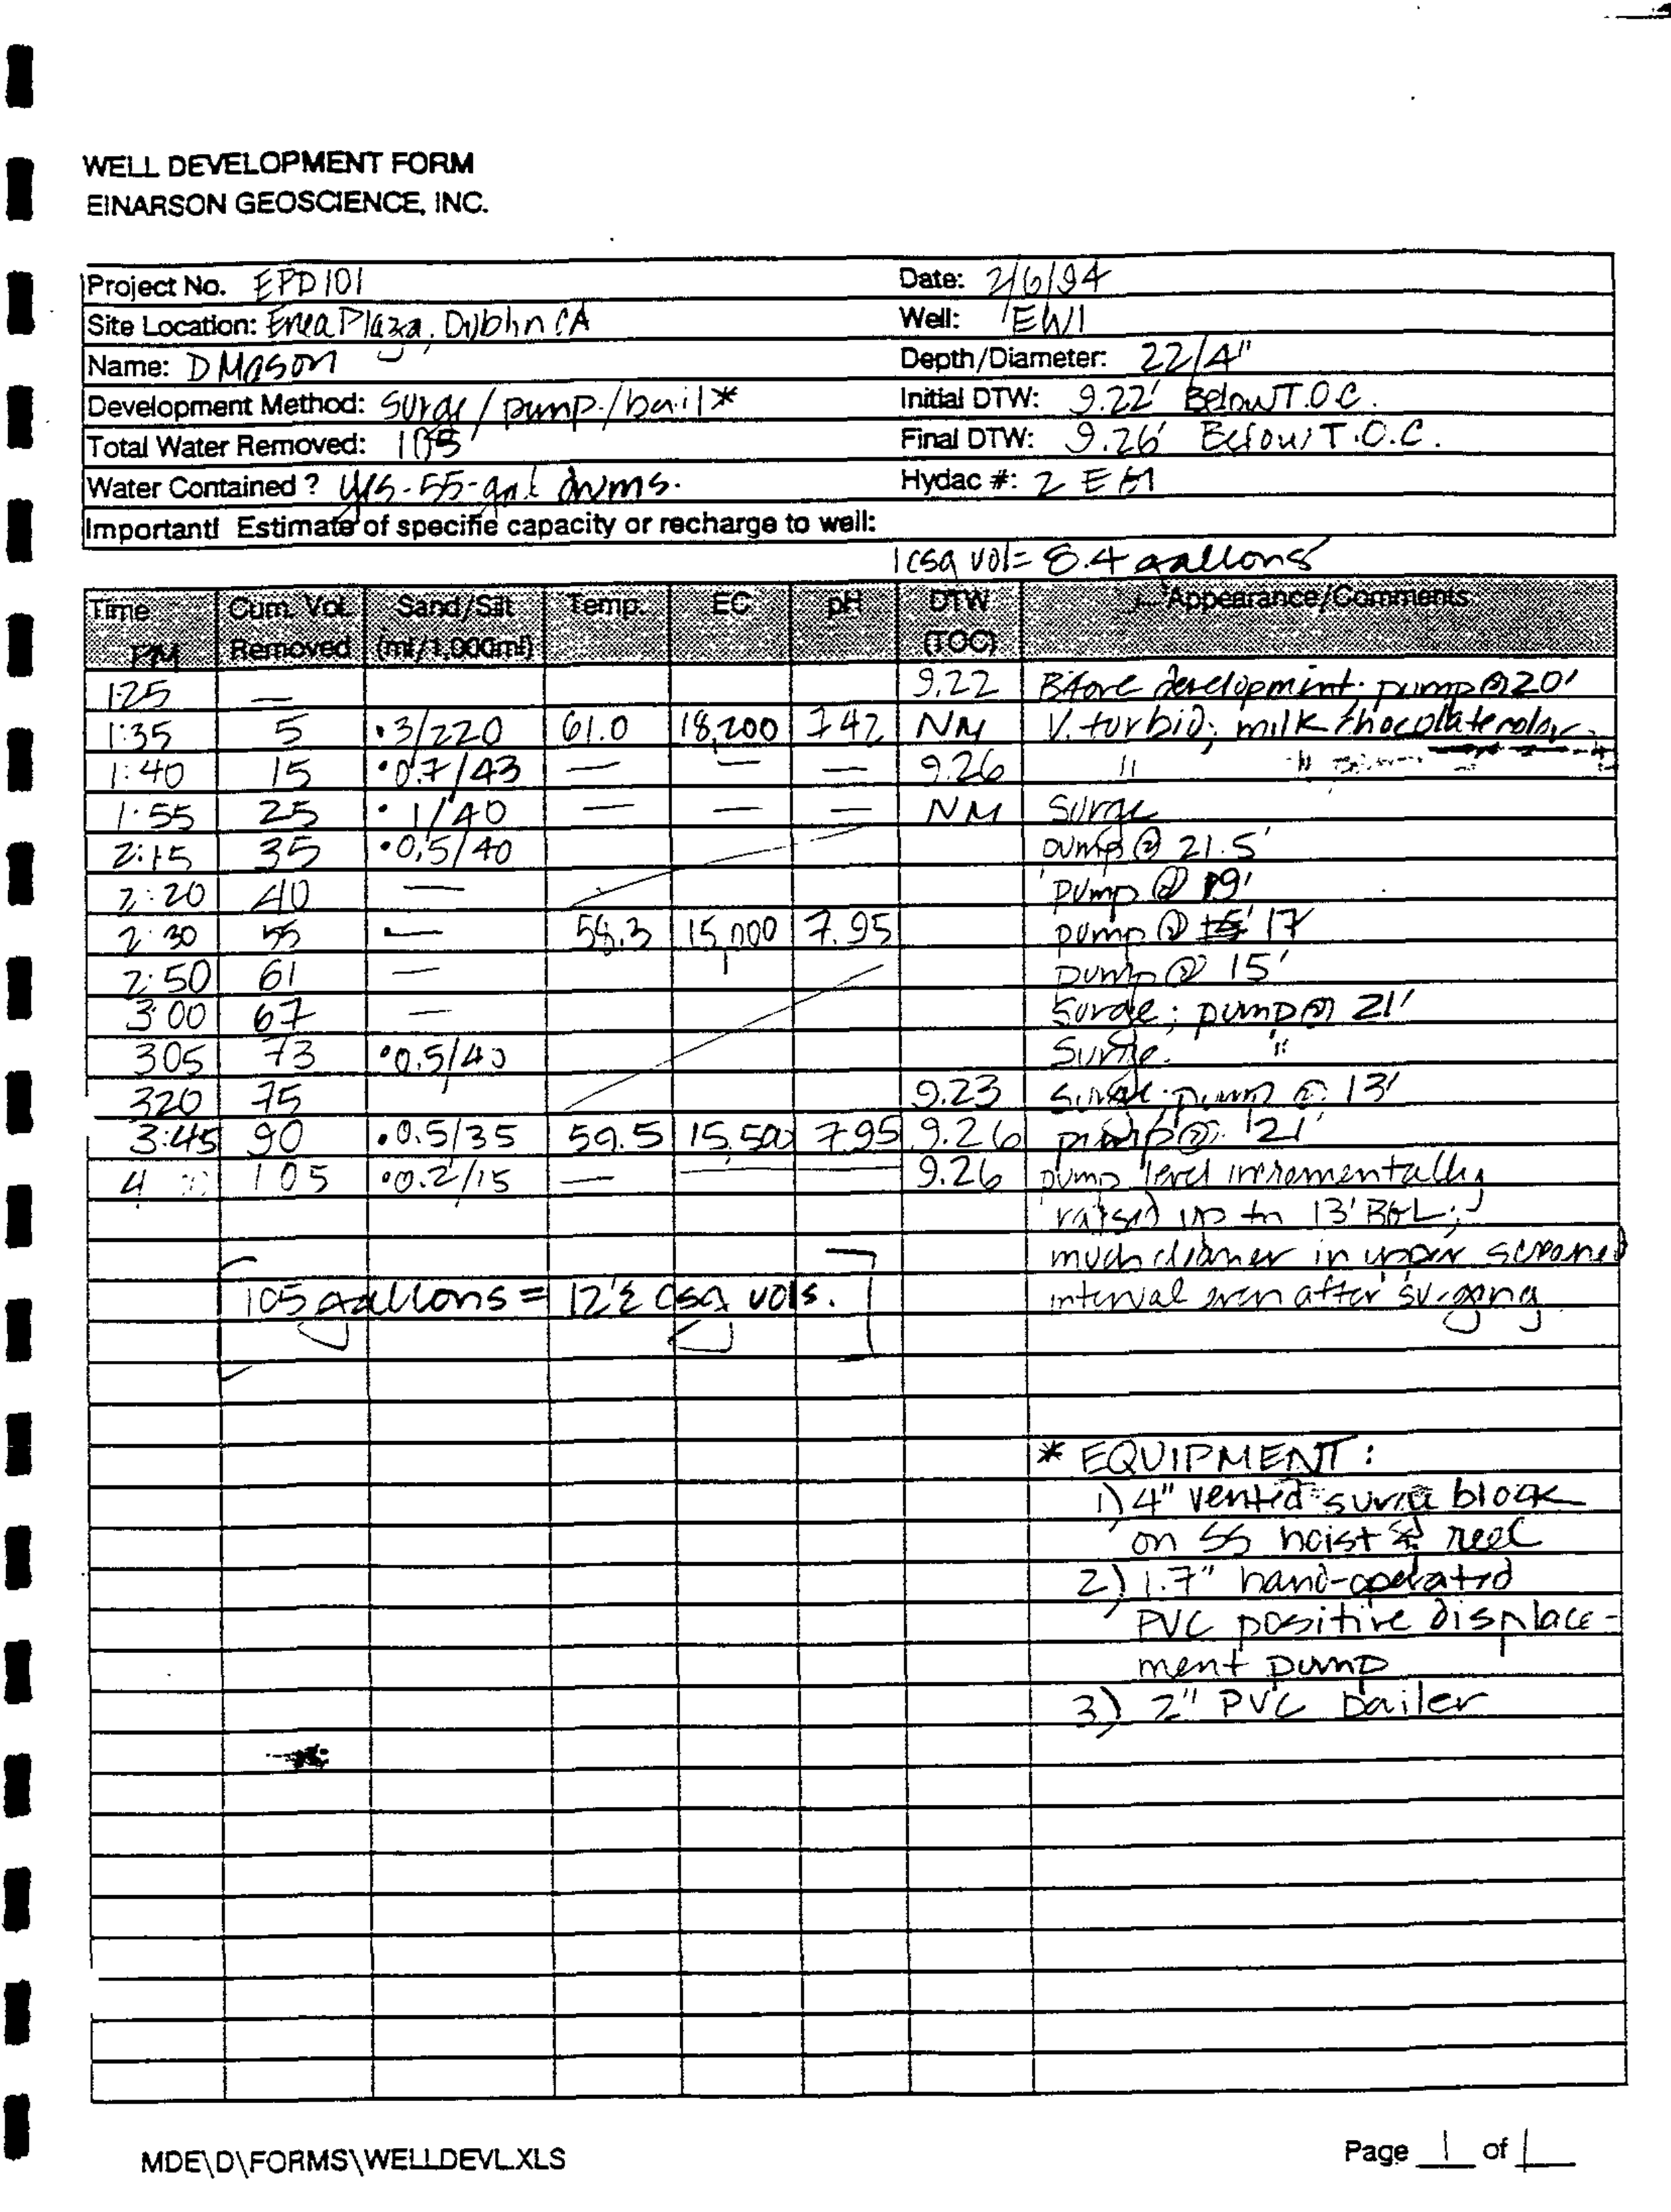 WELL DEVELOPMENT FORM
EINARSON GEOSCIENCE, INC.
Project No. EPD101 Date: 2/6/94
Site Location: Enea Plaza, Dublin CA Well: EW1
Name: D Mason Depth/Diameter: 22/4"
Development Method: Surge/pump/bail* Initial DTW: 9.22' Below T.O.C.
Total Water Removed: 105 Final DTW: 9.26' Below T.O.C.
Water Contained? yes-55-gal drums. Hydac #: 2
Important! Estimate of specific capacity or recharge to well:
1 csg vol= 8.4 gallons
Time Cum. Vol. Sand/Silt Temp. EC pH DTW Appearance/Comments
PM Removed (ml/1,000ml) (TOC)
1:25 — 9.22 Before development. pump @ 20'
1:35 5 .3/220 61.0 18,200 7.42 NM V. turbid; milk chocolate color
1:40 15 .07/43 — — — 9.26 "
1:55 25 .1/40 — — — NM Surge
2:15 35 .0.5/40 pump @ 21.5'
2:20 40 — pump @ 19'
2:30 55 — 58.3 15,000 7.95 pump @ 17
2:50 61 — pump @ 15'
3:00 67 — Surge; pump @ 21'
305 73 .0.5/40 Surge. "
320 75 9.23 Surge; pump @ 13'
3:45 90 .0.5/35 59.5 15,500 7.95 9.26 pump @ 21'
4 105 .0.2/15 — 9.26 pump level incrementally
raised up to 13' BGL;
much cleaner in upper screened
105 gallons = 12½ csg vols. interval even after surging
* EQUIPMENT:
1) 4" vented surge block
on SS hoist & reel
2) 1.7" hand-operated
PVC positive displace-
ment pump
3) 2" PVC bailer
MDE\D\FORMS\WELLDEVL.XLS Page 1 of 1